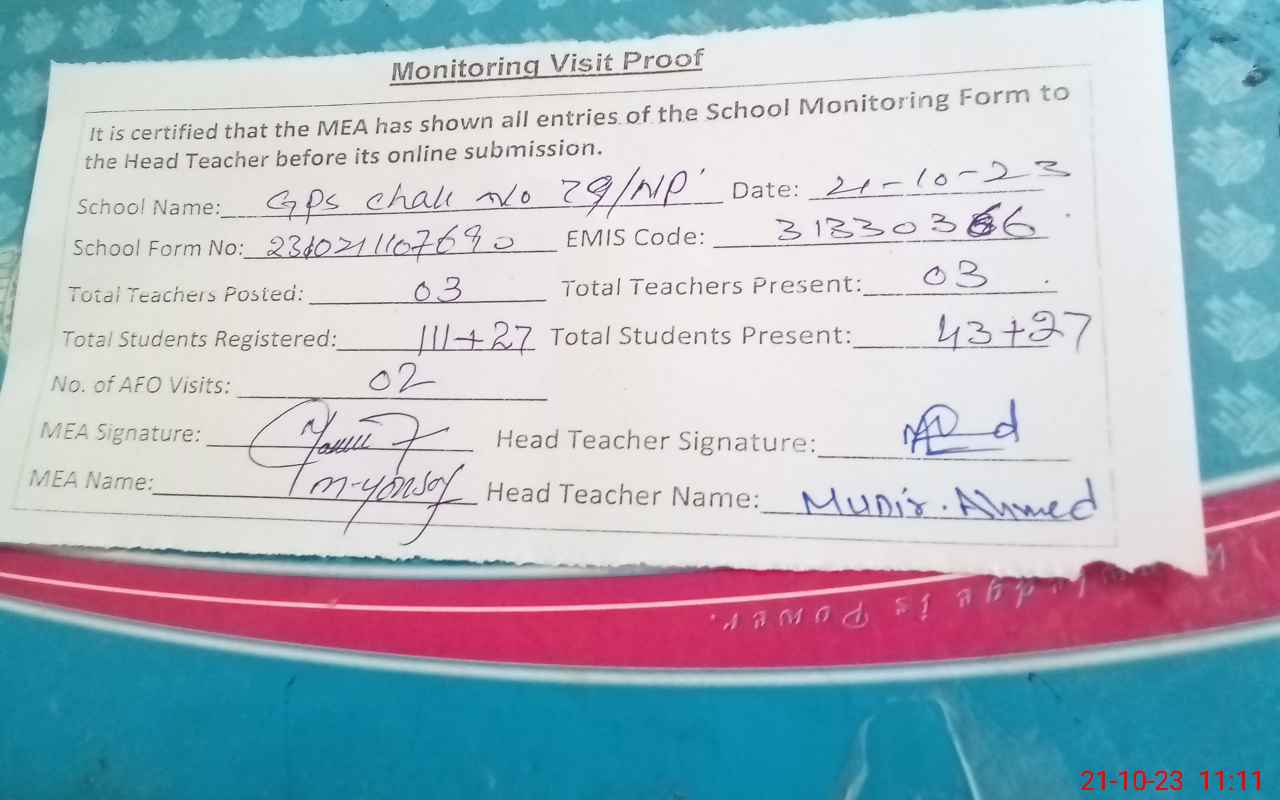 Monitoring Visit Proof
It is certified that the MEA has shown all entries of the School Monitoring Form to
the Head Teacher before its online submission.
School Name: GPS chak No 79/NP Date: 21-10-23
School Form No: 231021107690 EMIS Code: 31330366
Total Teachers Posted: 03 Total Teachers Present: 03
Total Students Registered: 111+27 Total Students Present: 43+27
No. of AFO Visits: 02
MEA Signature: Head Teacher Signature:
MEA Name: Head Teacher Name: Munir.Ahmed
is Power.
21-10-23 11:11